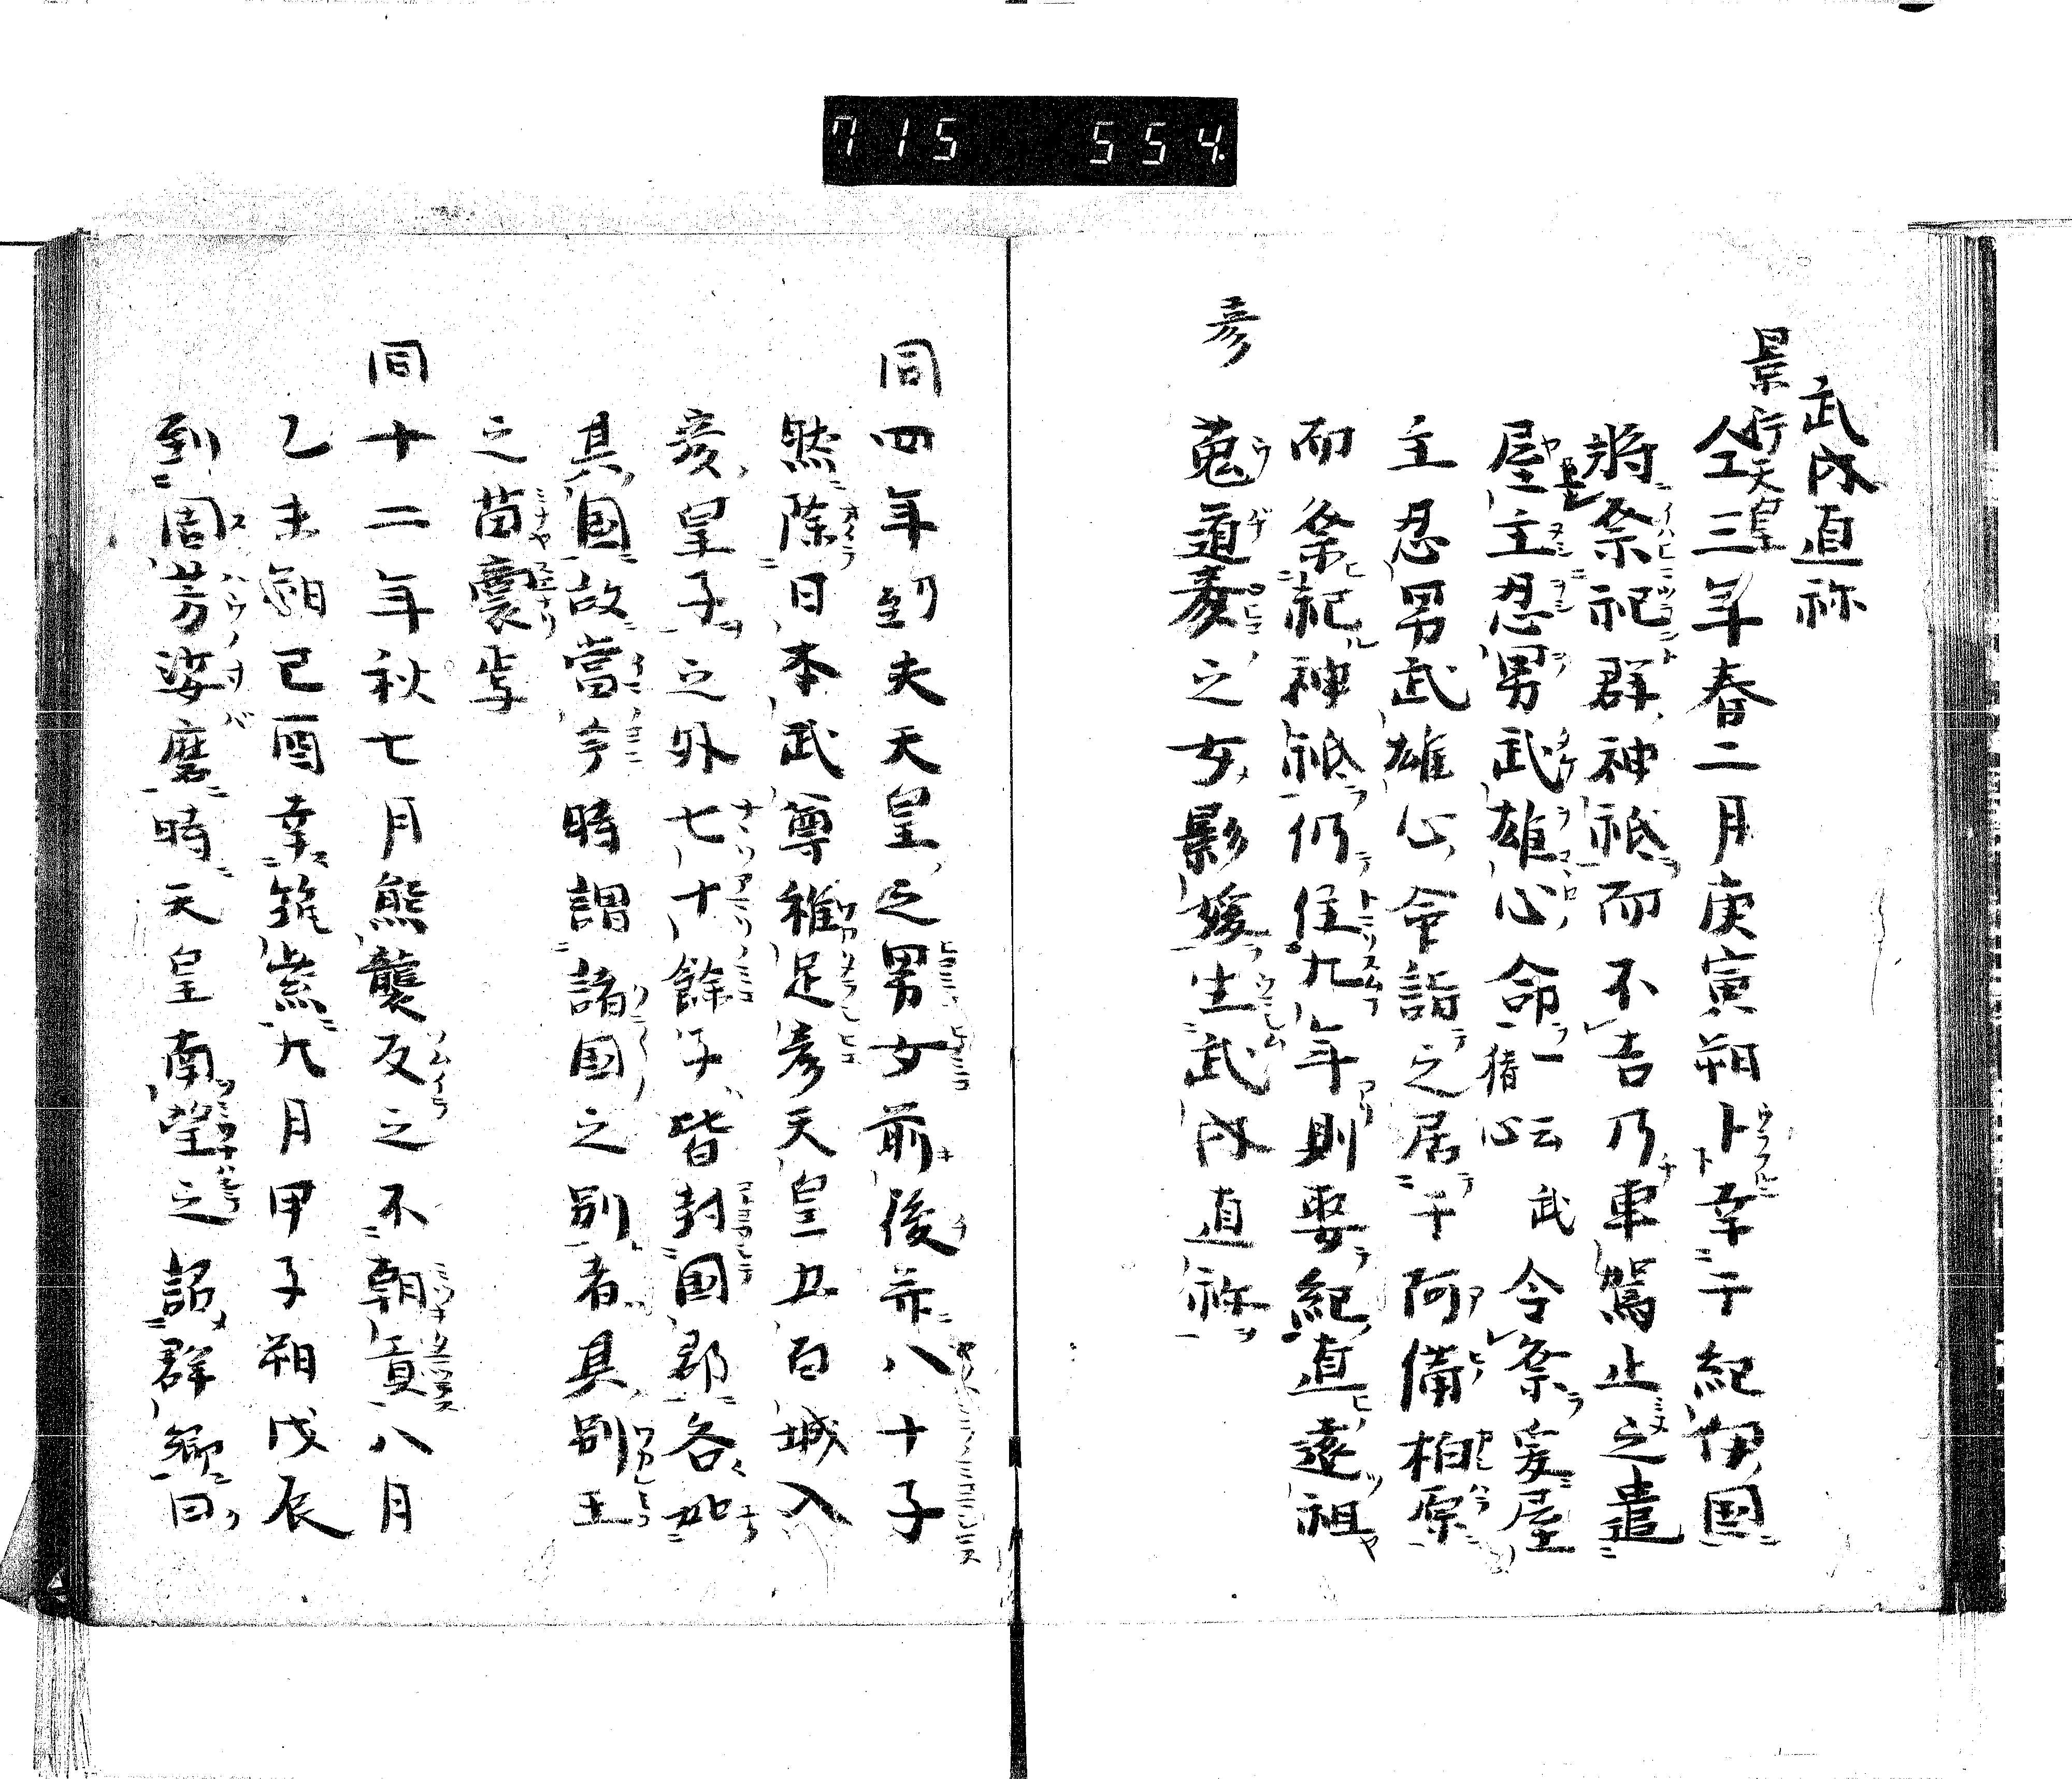 715 554
武内直祢
景行天皇
仝三年春二月庚寅朔卜幸于紀伊国
將祭祀群神祇而不吉乃車駕止之遣
屋主忍男武雄心命一云武猪心令祭爰屋
主忍男武雄心命詣之居于阿備柏原
而祭祀神祇仍住九年則娶紀直遠祖
菟道彦之女影媛生武内直祢
彦
同四年到夫天皇之男女前後并八十子
然除日本武尊稚足彦天皇五百城入
彦皇子之外七十餘子皆封國郡各如
其國故當今時謂諸国之別者其別王
之苗裔焉
同十二年秋七月熊襲反之不朝貢八月
乙未朔己酉幸筑紫九月甲子朔戊辰
到周芳娑麼時天皇南望之詔群卿曰